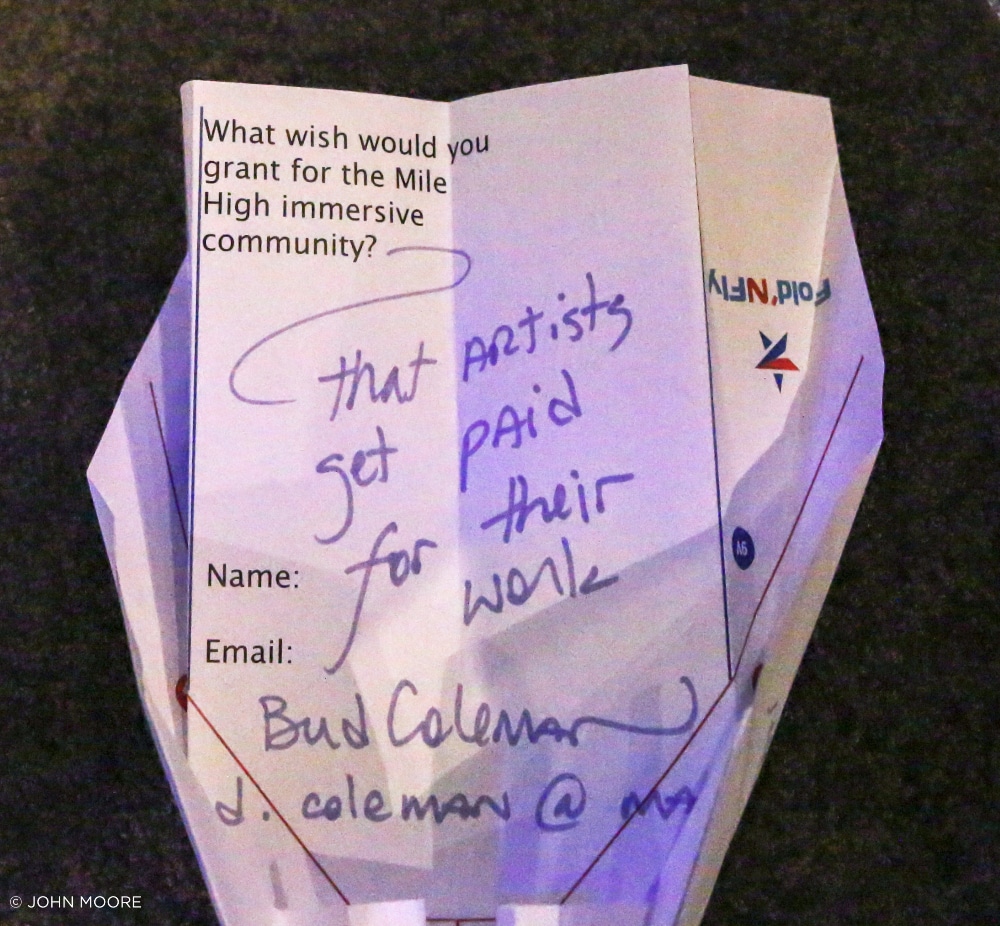 What wish would you
grant for the Mile
High immersive
community?
that ARtists
get PAid
for their
work
Name:
Email:
Bud Coleman
d. coleman @
Fold'NFly
A6
© JOHN MOORE